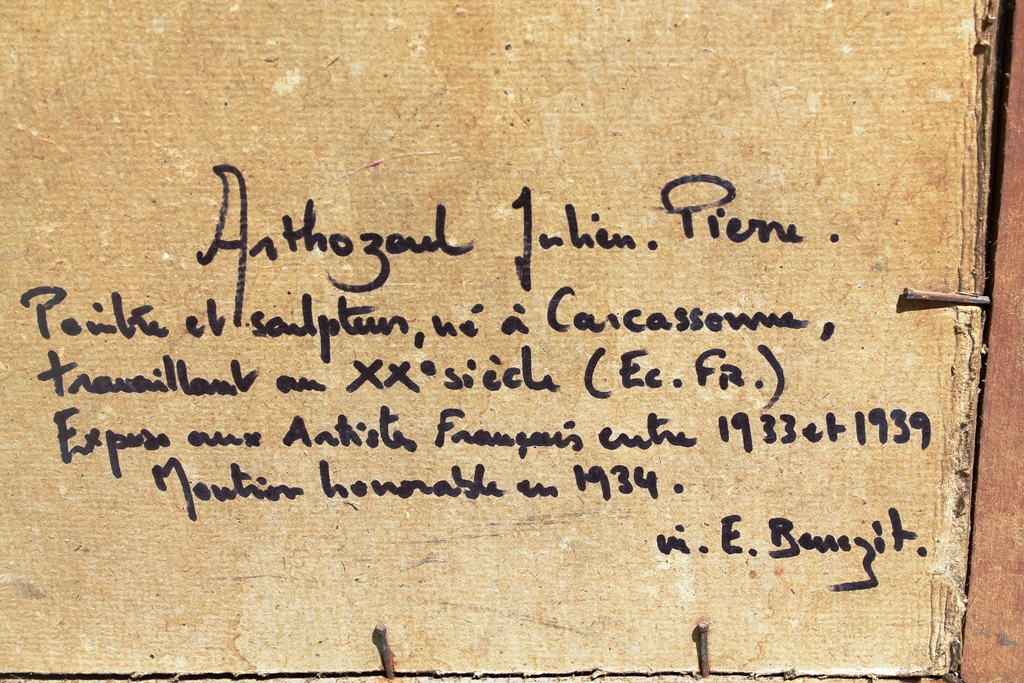 Arthozoul Julien. Pierre.
Peintre et sculpteur, né à Carcassonne,
travaillant au XXe siècle (Ec. FR.)
Expose aux Artistes Français entre 1933 et 1939
Mention honorable en 1934.
in. E. Benezit.